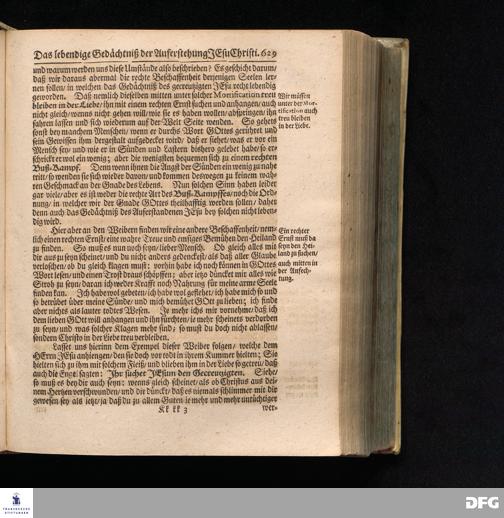 Das lebendige Gedächtniß der Auferstehung JEsu Christi. 629
und warum werden uns diese Umstände also beschrieben? Es geschicht darum/
daß wir daraus abermal die rechte Beschaffenheit derjenigen Seelen ler-
nen sollen/ in welchen das Gedächtniß des gecreutzigten JEsu recht lebendig
geworden. Daß nemlich dieselben mitten unter solcher Mortification treu
bleiben in der Liebe/ ihn mit einem rechten Ernst suchen und anhangen/ auch
nicht gleich/ wenns nicht gehen will/ wie sie es haben wollen/ abspringen/ ihn
fahren lassen und sich wiederum auf der Welt Seite wenden. So gehets
sonst bey manchem Menschen/ wenn er durchs Wort GOttes gerühret und
sein Gewissen ihm dergestalt aufgedecket wird/ daß er siehet/ was er vor ein
Mensch sey/ und wie er in Sünden und Lastern bishero gelebet habe/ so er-
schrickt er wol ein wenig; aber die wenigsten bequemen sich zu einem rechten
Buß-Kampf. Denn wenn ihnen die Angst der Sünden ein wenig zu nahe
tritt/ so wenden sie sich wieder davon/ und kommen deswegen zu keinem wah-
ren Geschmack an der Gnade des Lebens. Nun solchen Sinn haben leider
gar viele/ aber es ist weder die rechte Art des Buß-Kampfes/ noch die Ord-
nung/ in welcher wir der Gnade GOttes theilhafftig werden sollen/ daher
denn auch das Gedächtniß des Auferstandenen JEsu bey solchen nicht leben-
dig wird.
Wir müssen
unter der Mor-
tification auch
treu bleiben
in der Liebe.
Hier aber an den Weibern finden wir eine andere Beschaffenheit/ nem-
lich einen rechten Ernst/ eine wahre Treue und emsiges Bemühen den Heiland
zu suchen. So muß es nun noch seyn/ lieber Mensch. Ob gleich alles mit
dir aus zu seyn scheinet/ und du nicht anders gedenckest/ als daß aller Glaube
verloschen/ ob du gleich klagen must: vorhin habe ich noch können in GOttes
Wort lesen/ und einen Trost draus schöpffen; aber jetzo düncket mir alles wie
Stroh zu seyn/ daran ich weder Krafft noch Nahrung für meine arme Seele
finden kan. Ich habe wol gebeten/ ich habe wol geflehet/ ich habe mich so und
so betrübet über meine Sünde/ und mich bemühet GOtt zu lieben; ich finde
aber nichts als lauter todtes Wesen. Je mehr ich mir vornehme/ daß ich
dem lieben GOtt will anhangen und ihn fürchten/ ie mehr scheinets verdorben
zu seyn/ und was solcher Klagen mehr sind; so must du doch nicht ablassen/
sondern Christo in der Liebe treu verbleiben.
Ein rechter
Ernst muß da
seyn den Hei-
land zu suchen/
auch mitten in
der Anfech-
tung.
Lasset uns hierinn dem Exempel dieser Weiber folgen/ welche dem
HErrn JEsu anhiengen/ den sie doch vor todt in ihrem Kummer hielten; Sie
hielten sich zu ihm mit solchem Fleiß/ und blieben ihm in der Liebe so getreu/ daß
auch die Engel sagten: Ihr suchet JEsum den Gecreutzigten. Siehe/
so muß es bey dir auch seyn: wenns gleich scheinet/ als ob Christus aus dei-
nem Hertzen verschwunden/ und dir dünckt/ daß es niemals schlimmer mit dir
gewesen sey als jetzt/ ja daß du zu allem Guten ie mehr und mehr untüchtiger
Kk kk 3
wer-
FRANCKESCHE
STIFTUNGEN
DFG